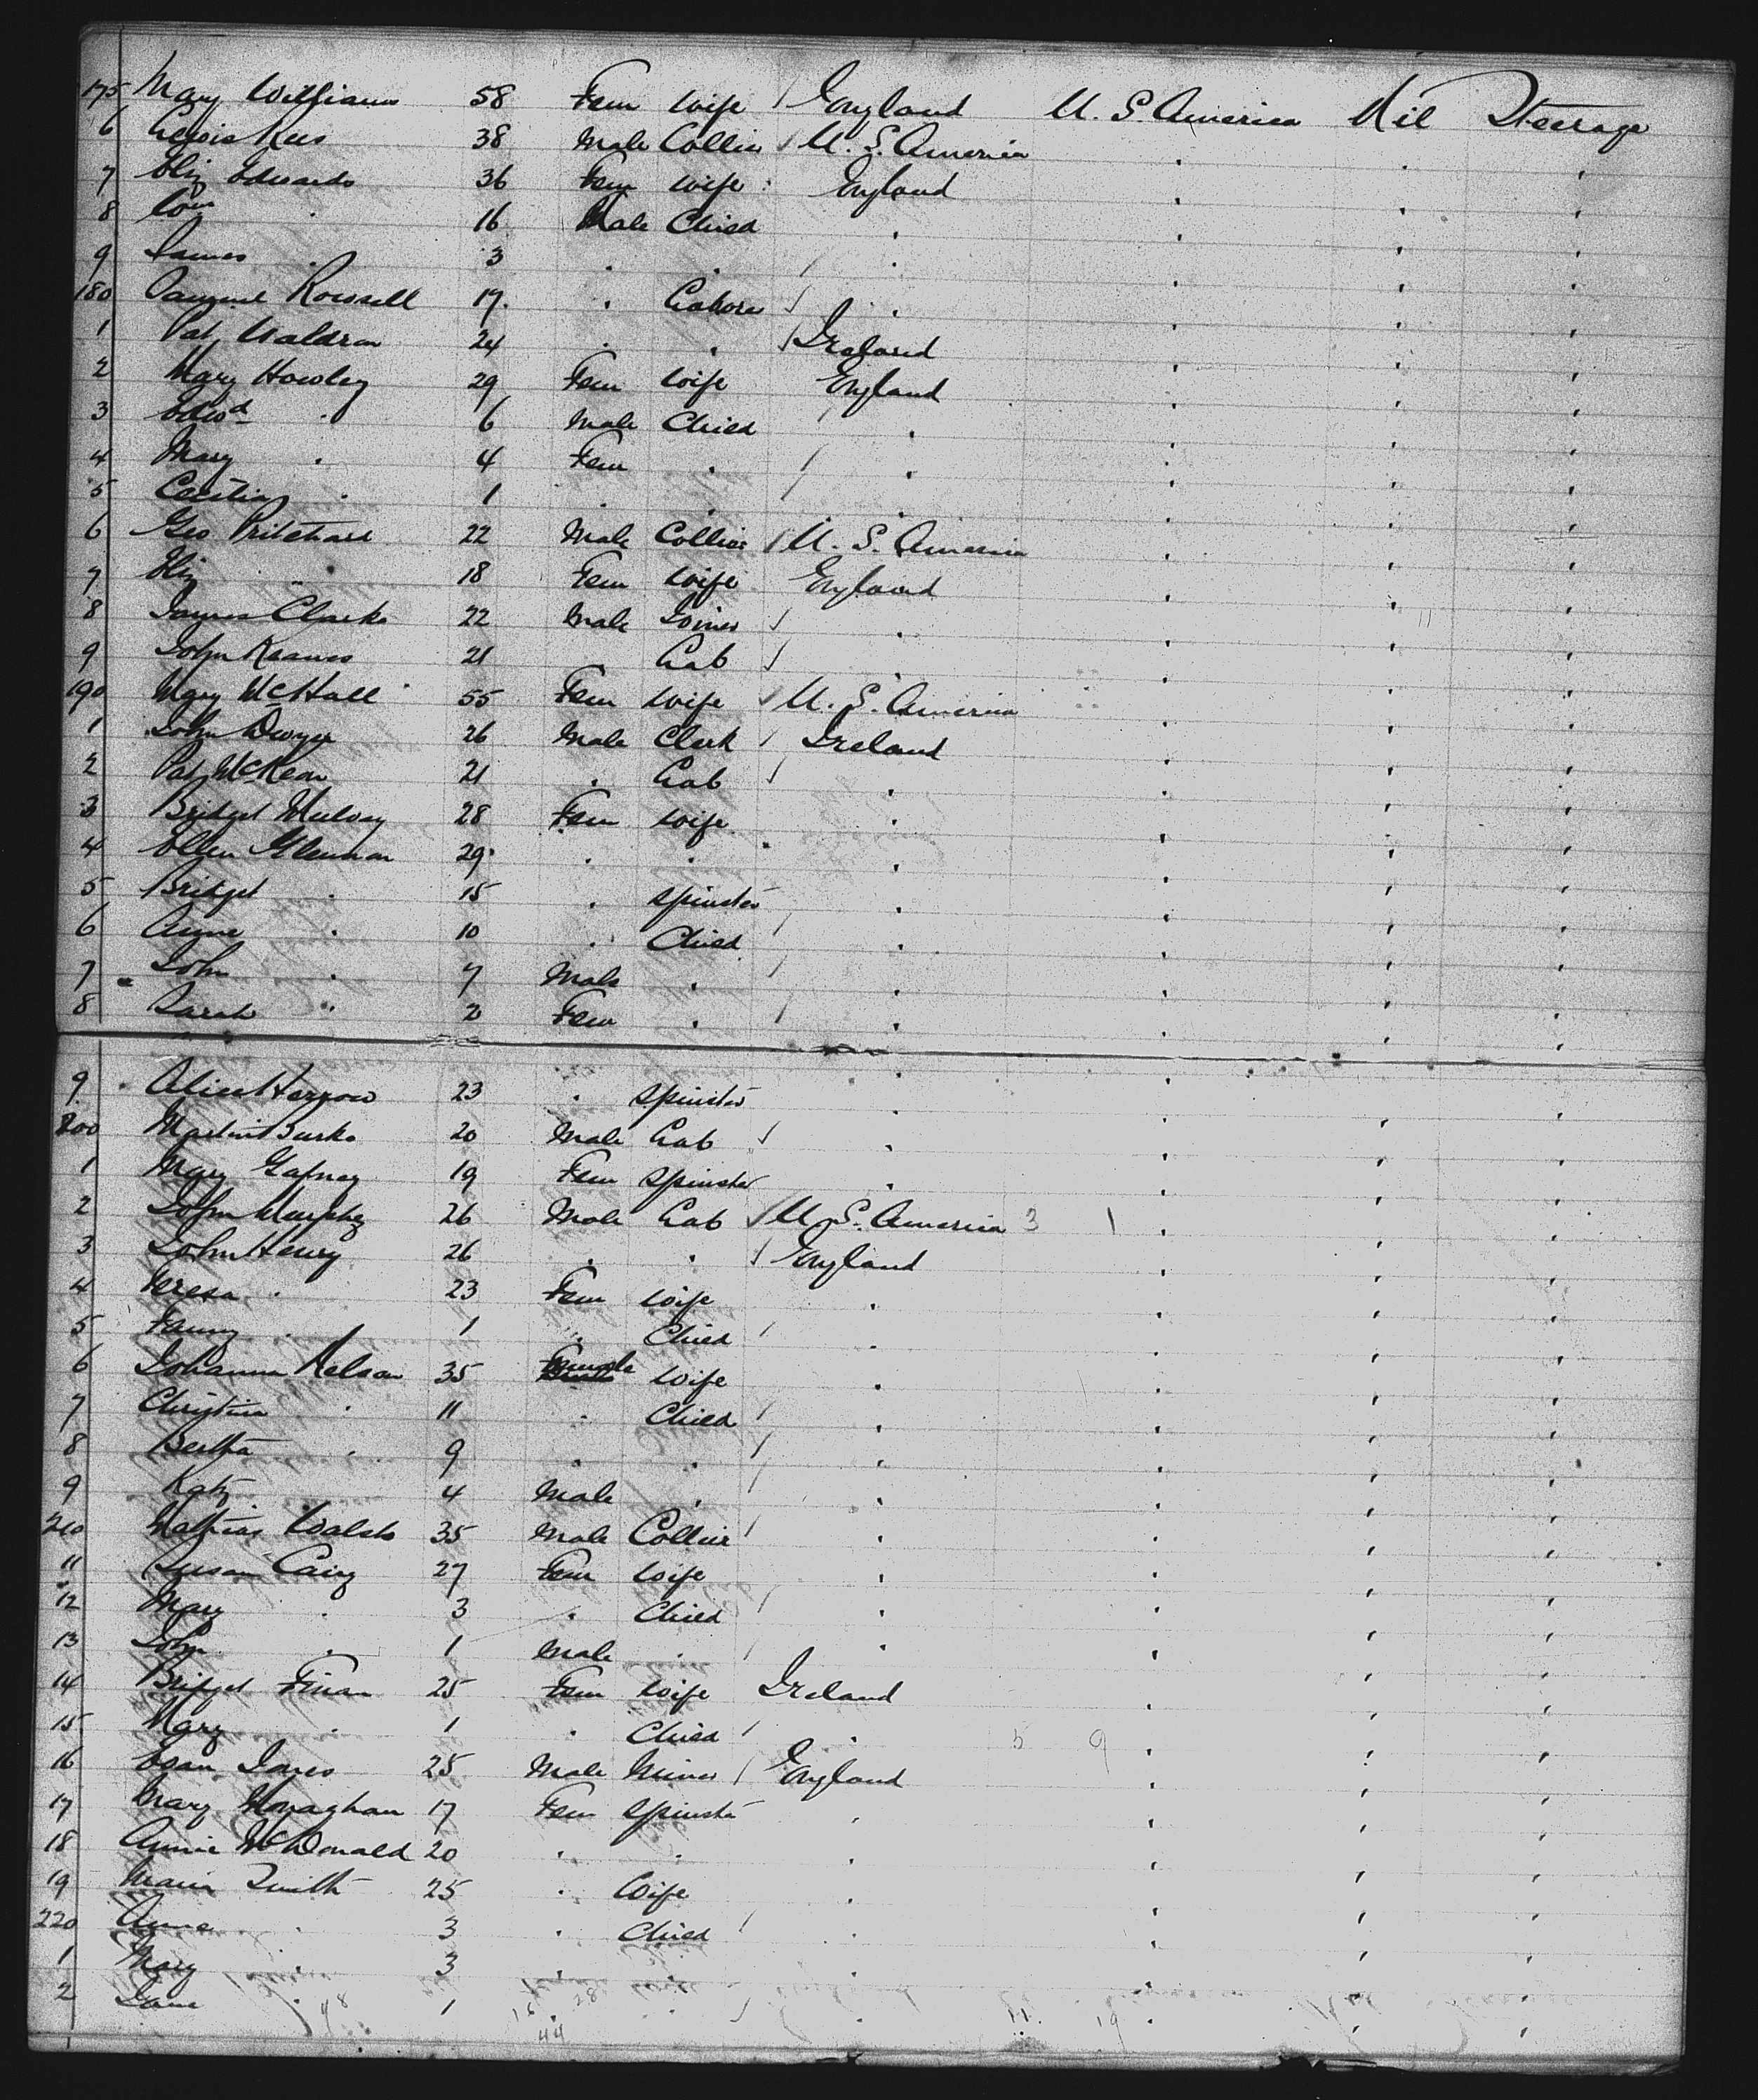 175 Mary Williams 58 Fem Wife / England U. S. America Nil Steerage
6 Lewis Rees 38 Male Collier / U. S. America " " "
7 Eliz Edwards 36 Fem Wife England " " "
8 Wm " 16 Male Child " " " "
9 James " 3 " " / " " " "
180 Samuel Rowsell 17 " Laborer / " " " "
1 Pat Waldron 24 " " / Ireland " " "
2 Mary Howley 29 Fem Wife England " " "
3 Edwd " 6 Male Child / " " " "
4 Mary " 4 Fem " / " " " "
5 Cecilia " 1 " " / " " " "
6 Geo Pritchard 22 Male Collier / U. S. America " " "
7 Eliz " 18 Fem Wife England " " "
8 James Clarke 22 Male Joiner / " " " "
9 John Reanes 21 Lab / " " "
190 Mary McHale 55 Fem Wife / U. S. America " " "
1 John Dwyer 26 Male Clerk / Ireland " " "
2 Pat McKeon 21 " Lab / " " " "
3 Bridget Mulvey 28 Fem Wife " " " "
4 Ellen Glennon 29 " " " " " "
5 Bridget " 15 " Spinster " " " "
6 Anne " 10 " Child / " " " "
7 John " 7 Male " / " " " "
8 Sarah " 2 Fem " / " " " "
9 Alice 23 " Spinster " " " "
200 Martin Burke 20 Male Lab / " " " "
1 Mary Gafney 19 Fem Spinster " " " "
2 John Murphy 26 Male Lab / U. S. America 3 1 " " "
3 John Henry 26 " " / England " " "
4 Teresa " 23 Fem Wife " " " "
5 Fanny " 1 " Child / " " " "
6 Johanna Nelson 35 Female Wife " " " "
7 Christina " 11 " Child / " " " "
8 Bertha " 9 " " / " " " "
9 Katz 4 Male " / " " " "
210 Mathias Walsh 35 Male Collier / " " " "
11 Susan Cairg 27 Fem Wife " " " "
12 Mary " 3 " Child / " " " "
13 John " 1 Male " / " " " "
14 Bridget Finan 25 Fem Wife Ireland " " "
15 Mary " 1 " Child / " 5 9 " " "
16 Evan Jones 25 Male Miner / England " " "
17 Mary Monaghan 17 Fem Spinster " " " "
18 Annie McDonald 20 " " " " " "
19 Maria Smith 25 " Wife " " " "
220 Anne " 3 " Child / " " " "
1 Mary " 3 " " " " " "
2 Jane " 1 " " / " " " "
48 16 28 11 19
44